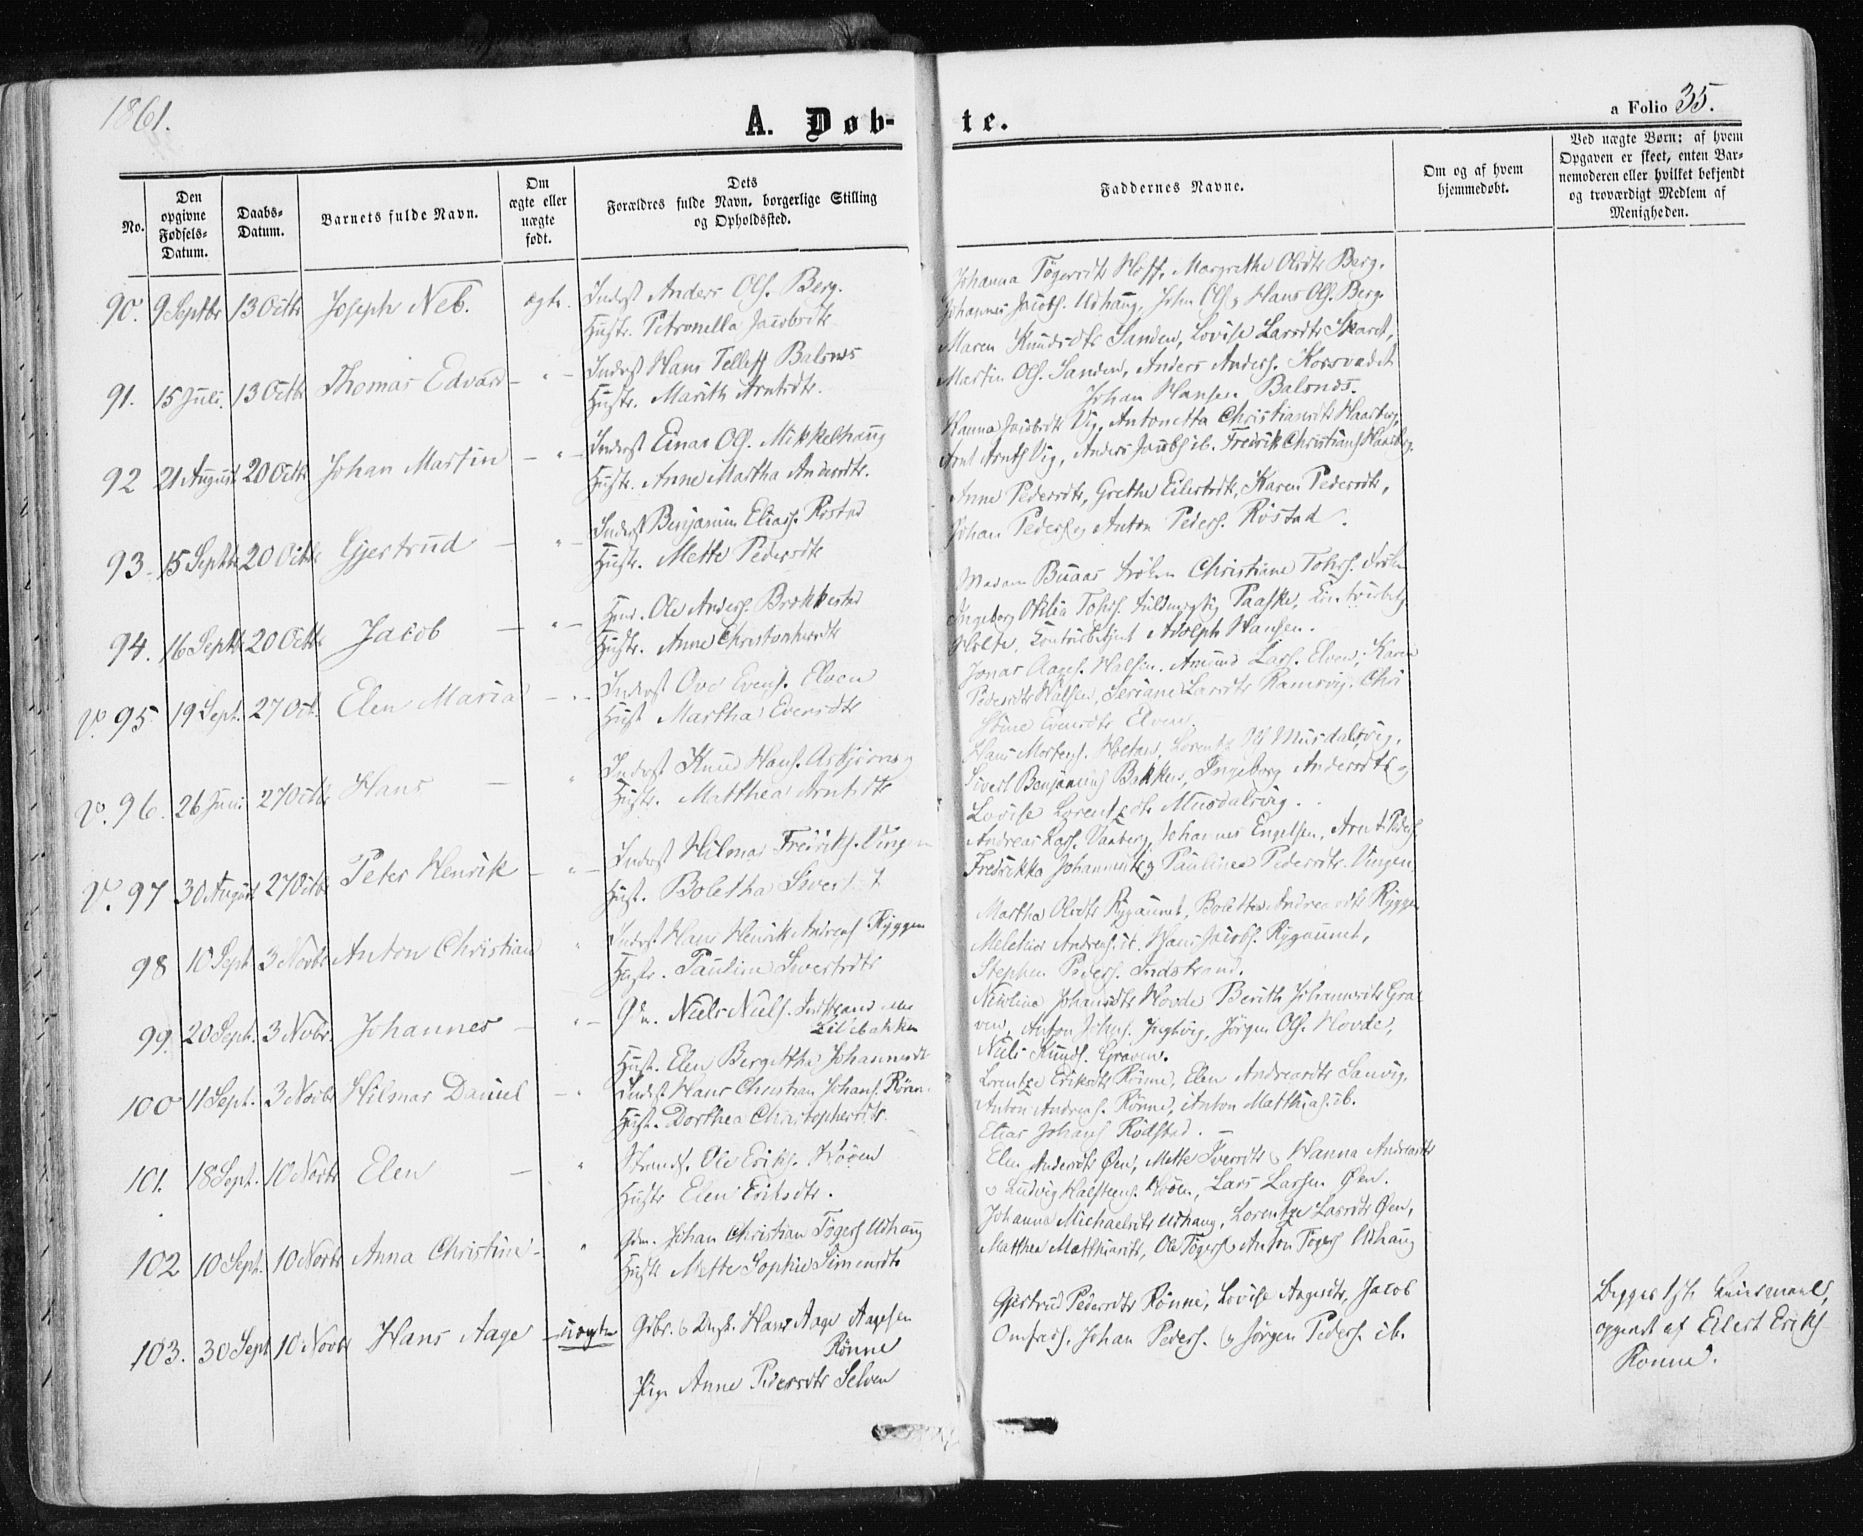 1861.
A. Døb-
te.
a Folio 35.
No.
Den opgivne Fødsels-Datum.
Daabs-Datum.
Barnets fulde Navn.
Om ægte eller nægte født.
Dets Forældres fulde Navn, borgerlige Stilling og Opholdssted.
Faddernes Navne.
Om og af hvem hjemmedøbt.
Ved nægte Børn: af hvem Opgaven er skeet, enten Barnemoderen eller hvilket bekjendt og troværdigt Medlem af Menigheden.
90. 9 Septbr 13 Octbr Joseph Neb. ægte. Inderst Anders Ols. Berg.
Hustr. Petronella Jacobsdtr
Johanna Tøgersdtr Hoff, Margrethe Olsdtr Berg.
Johannes Jacobs. Udhaug, John Ols. & Hans Ols. Berg.
91. 15 Juli. 13 Octbr Thomas Edvard - " - Inderst Hans Tellefs Balsnes
Hustr. Marith Arntsdtr.
Maren Knudsdtr Sanden, Lovise Larsdtr Skaret,
Martin Ols. Sanden, Anders Anders. Korsvadet
Johan Hansen Balsnes.
92 21 August 20 Octbr Johan Martin - " - Inderst Einar Ols. Mikkelhaug
Hustr. Anne Martha Andersdtr.
Hanna Jacobsdtr Vig, Antonetta Christiansdtr Haarberg,
Arnt Arnts Vig, Anders Jacobs ib. Fredrik Christians Haarberg.
93. 15 Septbr 20 Octbr Gjertrud - " - Inderst Benjamin Elias. Røstad
Hustr. Mette Pedersdtr
Anne Pedersdtr, Grethe Eilertsdtr, Karen Pedersdtr,
Johan Peders & Anton Peders. Røstad.
94. 16 Septbr 20 Octbr Jacob - " - Ole Anders. Brækkestad
Hustr. Anne Christophersdtr
Madam Buaas Frøken Christiane
Ingeborg Otilia Fuldmægtig Paaske,
Holte, Adolph Hansen.
V. 95 19 Sept. 27 Oct. Elen Maria - " - Inderst Ove Evens. Elven
Hust Martha Evensdtr
Jonas Aages. Halsen. Amund Lars. Elven, Karen
Pedersdtr Halsen, Seriane Larsdtr Ramsvig. Chri
stine Evensdtr Elven.
V. 96. 26 Juni 27 Octbr Hans - " Inderst Knud Hans. Asbjørns
Hustr. Matthea Arntsdtr
Hans Mortens. Hetars, Lorentz Ols Musdalsvig,
Sivert Benjamins Bakken, Ingeborg Andersdtr &
Lovise Lorentzdtr Musdalsvig.
V. 97 30 August 27 Octbr Peter Henrik - " - Inderst Hilmar Fredriks. Vingen
Hust. Boletha Sivertsdt
Andreas Vanberg, Johannes Engelsen, Arnt Peders
Fredrikka Johannesdtr & Pauline Pedersdtr Vingen,
98 10 Sept 3 Novbr Anton Christian " Inderst Hans Henrik Andreas Ryggen
Hustr. Pauline Sivertsdtr
Martha Olsdtr Rygaunet, Bolette Andreasdtr Ryggen
Melchior Andreas. ib. Hans Jacobs. Rygaunet,
Stephen Peders. Indstrand.
99. 20 Sept. 3 Nobr. Johannes - " - Gm. Niels Niels. Indstrand
Lilibakken
Hust. Elen Bergitha Johannesdtr
Nicoline Johansdtr Hovde Berith Johannesdtr Gra
ven, Anton Johns. Ingdvig, Jørgen Ols. Hovde,
Niels Knuds. Graven.
100 11 Sept. 3 Novbr Hilmar Daniel - " Inderst Hans Christian Johans. Røran
Hust. Dorthea Christophersdtr.
Lorentze Eriksdtr Rønne, Elen Andreasdtr Sanvig,
Anton Andreas. Rønne, Anton Matthias. ib.
Elias Johans Rødstad. -
101. 18 Sept. 10 Novbr Elen - " Strands. Ole Eriks. Høøen
Hustr Elen Eriksdtr.
Elen Andersdtr Øen, Mette Iversdtr & Hanna Andreasdtr
& Ludvig Halsteens. Høøen, Lars Larsen Øen.
102 10 Sept. 10 Novbr Anna Christine - " Gdm. Johan Christian Tøgers Udhaug
Hustr Mette Sophie Simensdtr
Johanna Michaelsdtr Udhaug, Lorentze Larsdtr Øen,
Matthea Matthiasdtr, Ole Tøgers & Anton Tøgers Udhaug
103. 30 Sept 10 Novbr Hans Aage - uægte Gibr. & Ungk. Hans Aage Aagesen
Rønne
Pige Anne Pedersdtr Selven
Gjertrud Pedersdtr Rønne, Lovise Aagesdtr, Jacob
Omfreds. Johan Peders. & Jørgen Peders. ib.
Begges 1ste Leiermaal,
opgivet af Eilert Eriks
Rønne.